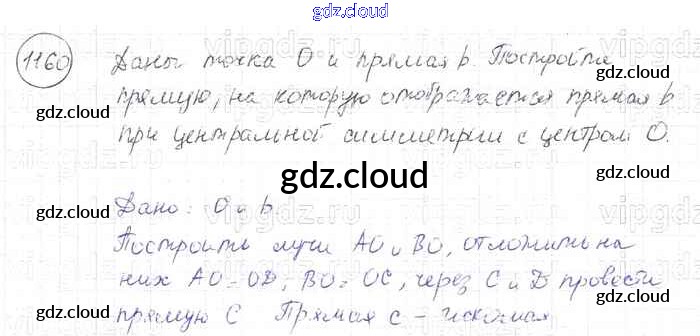 gdz.cloud
1160 Даны точка O и прямая b. Постройте
прямую, на которую отображается прямая b
при центральной симметрии с центром O.
gdz.cloud
Дано: O и b
Построить лучи AO и BO, отложить на
них AO=OD, BO=OC, через C и D провести
прямую C Прямая c - искомая
gdz.cloud
gdz.cloud
gdz.cloud
gdz.cloud
gdz.cloud
gdz.cloud
gdz.cloud
gdz.cloud